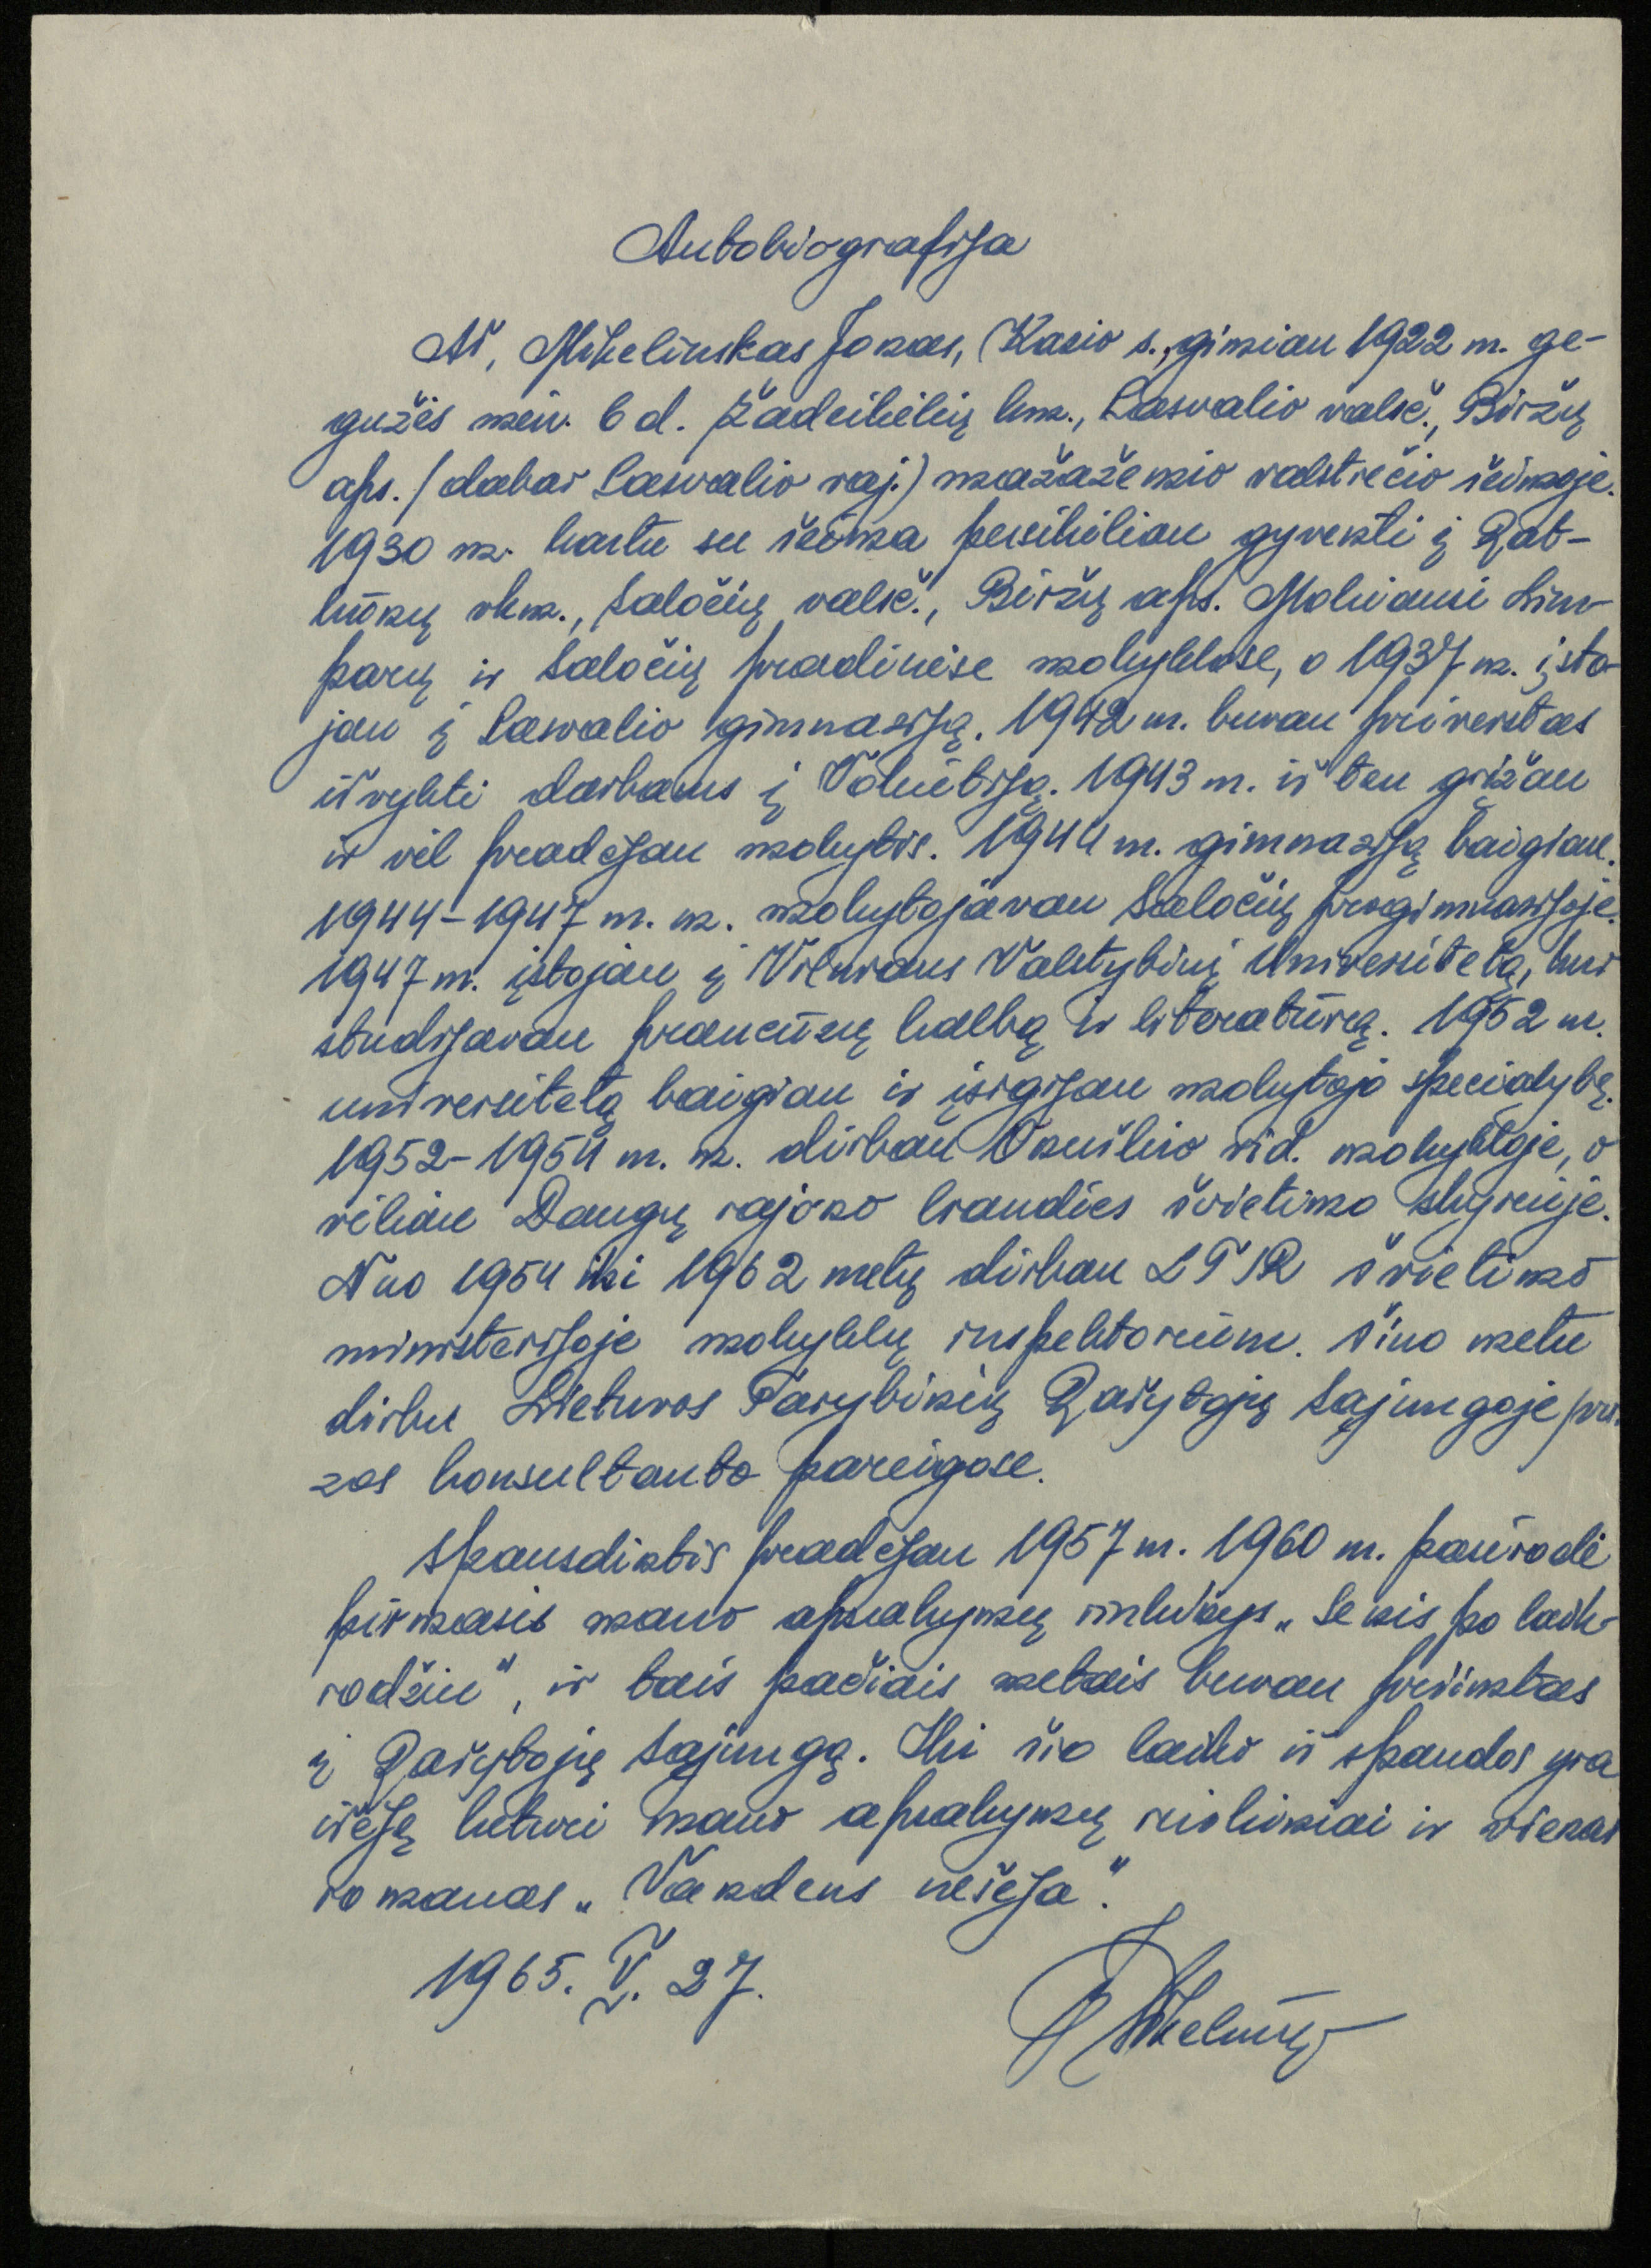 Autobiografija
Aš, Mikelinskas Jonas, Kazio s., gimiau 1922 m. ge-
gužės mėn. 6 d. Žadeikėlių km., Pasvalio valsč., Biržų
aps. (dabar Pasvalio raj.) mažažemio valstiečio šeimoje.
1930 m. kartu su šeima persikėliau gyventi į Rat-
kūnų vkm., Saločių valsč., Biržų aps. Mokiausi
parų ir Saločių pradinėse mokyklose, o 1937 m. įsto-
jau į Pasvalio gimnaziją. 1942 m. buvau priverstas
išvykti darbams į Vokietiją. 1943 m. iš ten grįžau
ir vėl pradėjau mokytis. 1944 m. gimnaziją baigiau.
1944-1947 m. m. mokytojavau Saločių progimnazijoje.
1947 m. įstojau į Vilniaus Valstybinį Universitetą, kur
studijavau prancūzų kalbą ir literatūrą. 1952 m.
universitetą baigiau ir įsigijau mokytojo specialybę.
1952-1954 m. m. dirbau Onuškio vid. mokykloje, o
vėliau Daugų rajono liaudies švietimo skyriuje.
Nuo 1954 iki 1962 metų dirbau LTSR švietimo
ministerijoje mokyklų inspektorium. Šiuo metu
dirbu Lietuvos Tarybinių Rašytojų Sąjungoje pro-
zos konsultanto pareigose.
Spausdintis pradėjau 1957 m. 1960 m. pasirodė
pirmasis mano apsakymų rinkinys „Senis po laik-
rodžiu", ir tais pačiais metais buvau priimtas
į Rašytojų Sąjungą. Iki šio laiko iš spaudos yra
išėję keturi mano apsakymų rinkiniai ir vienas
romanas „Vandens nešėja".
1965. V. 27.